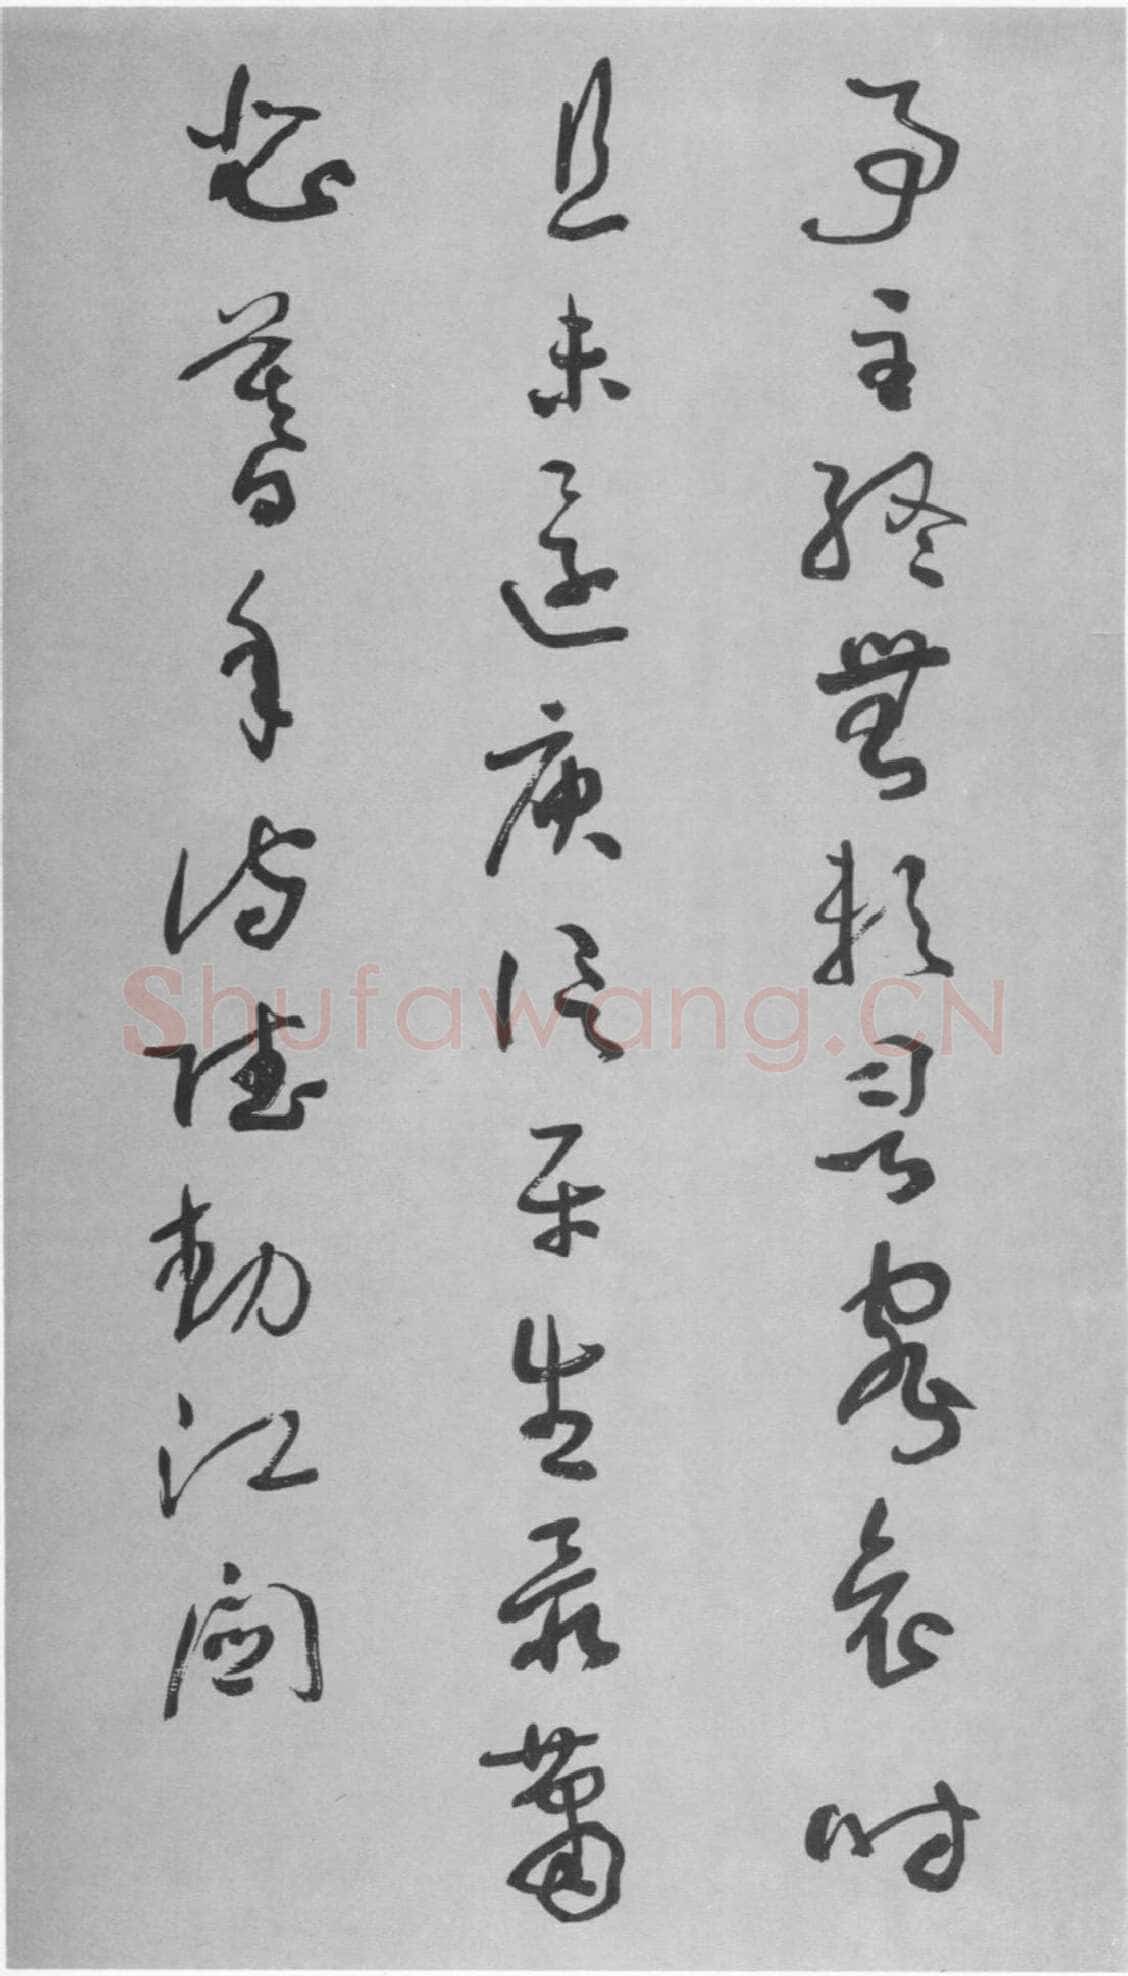 事主終無賴詞客哀時
且未還庾信平生最蕭
瑟暮年詩賦動江關
Shufawang.CN